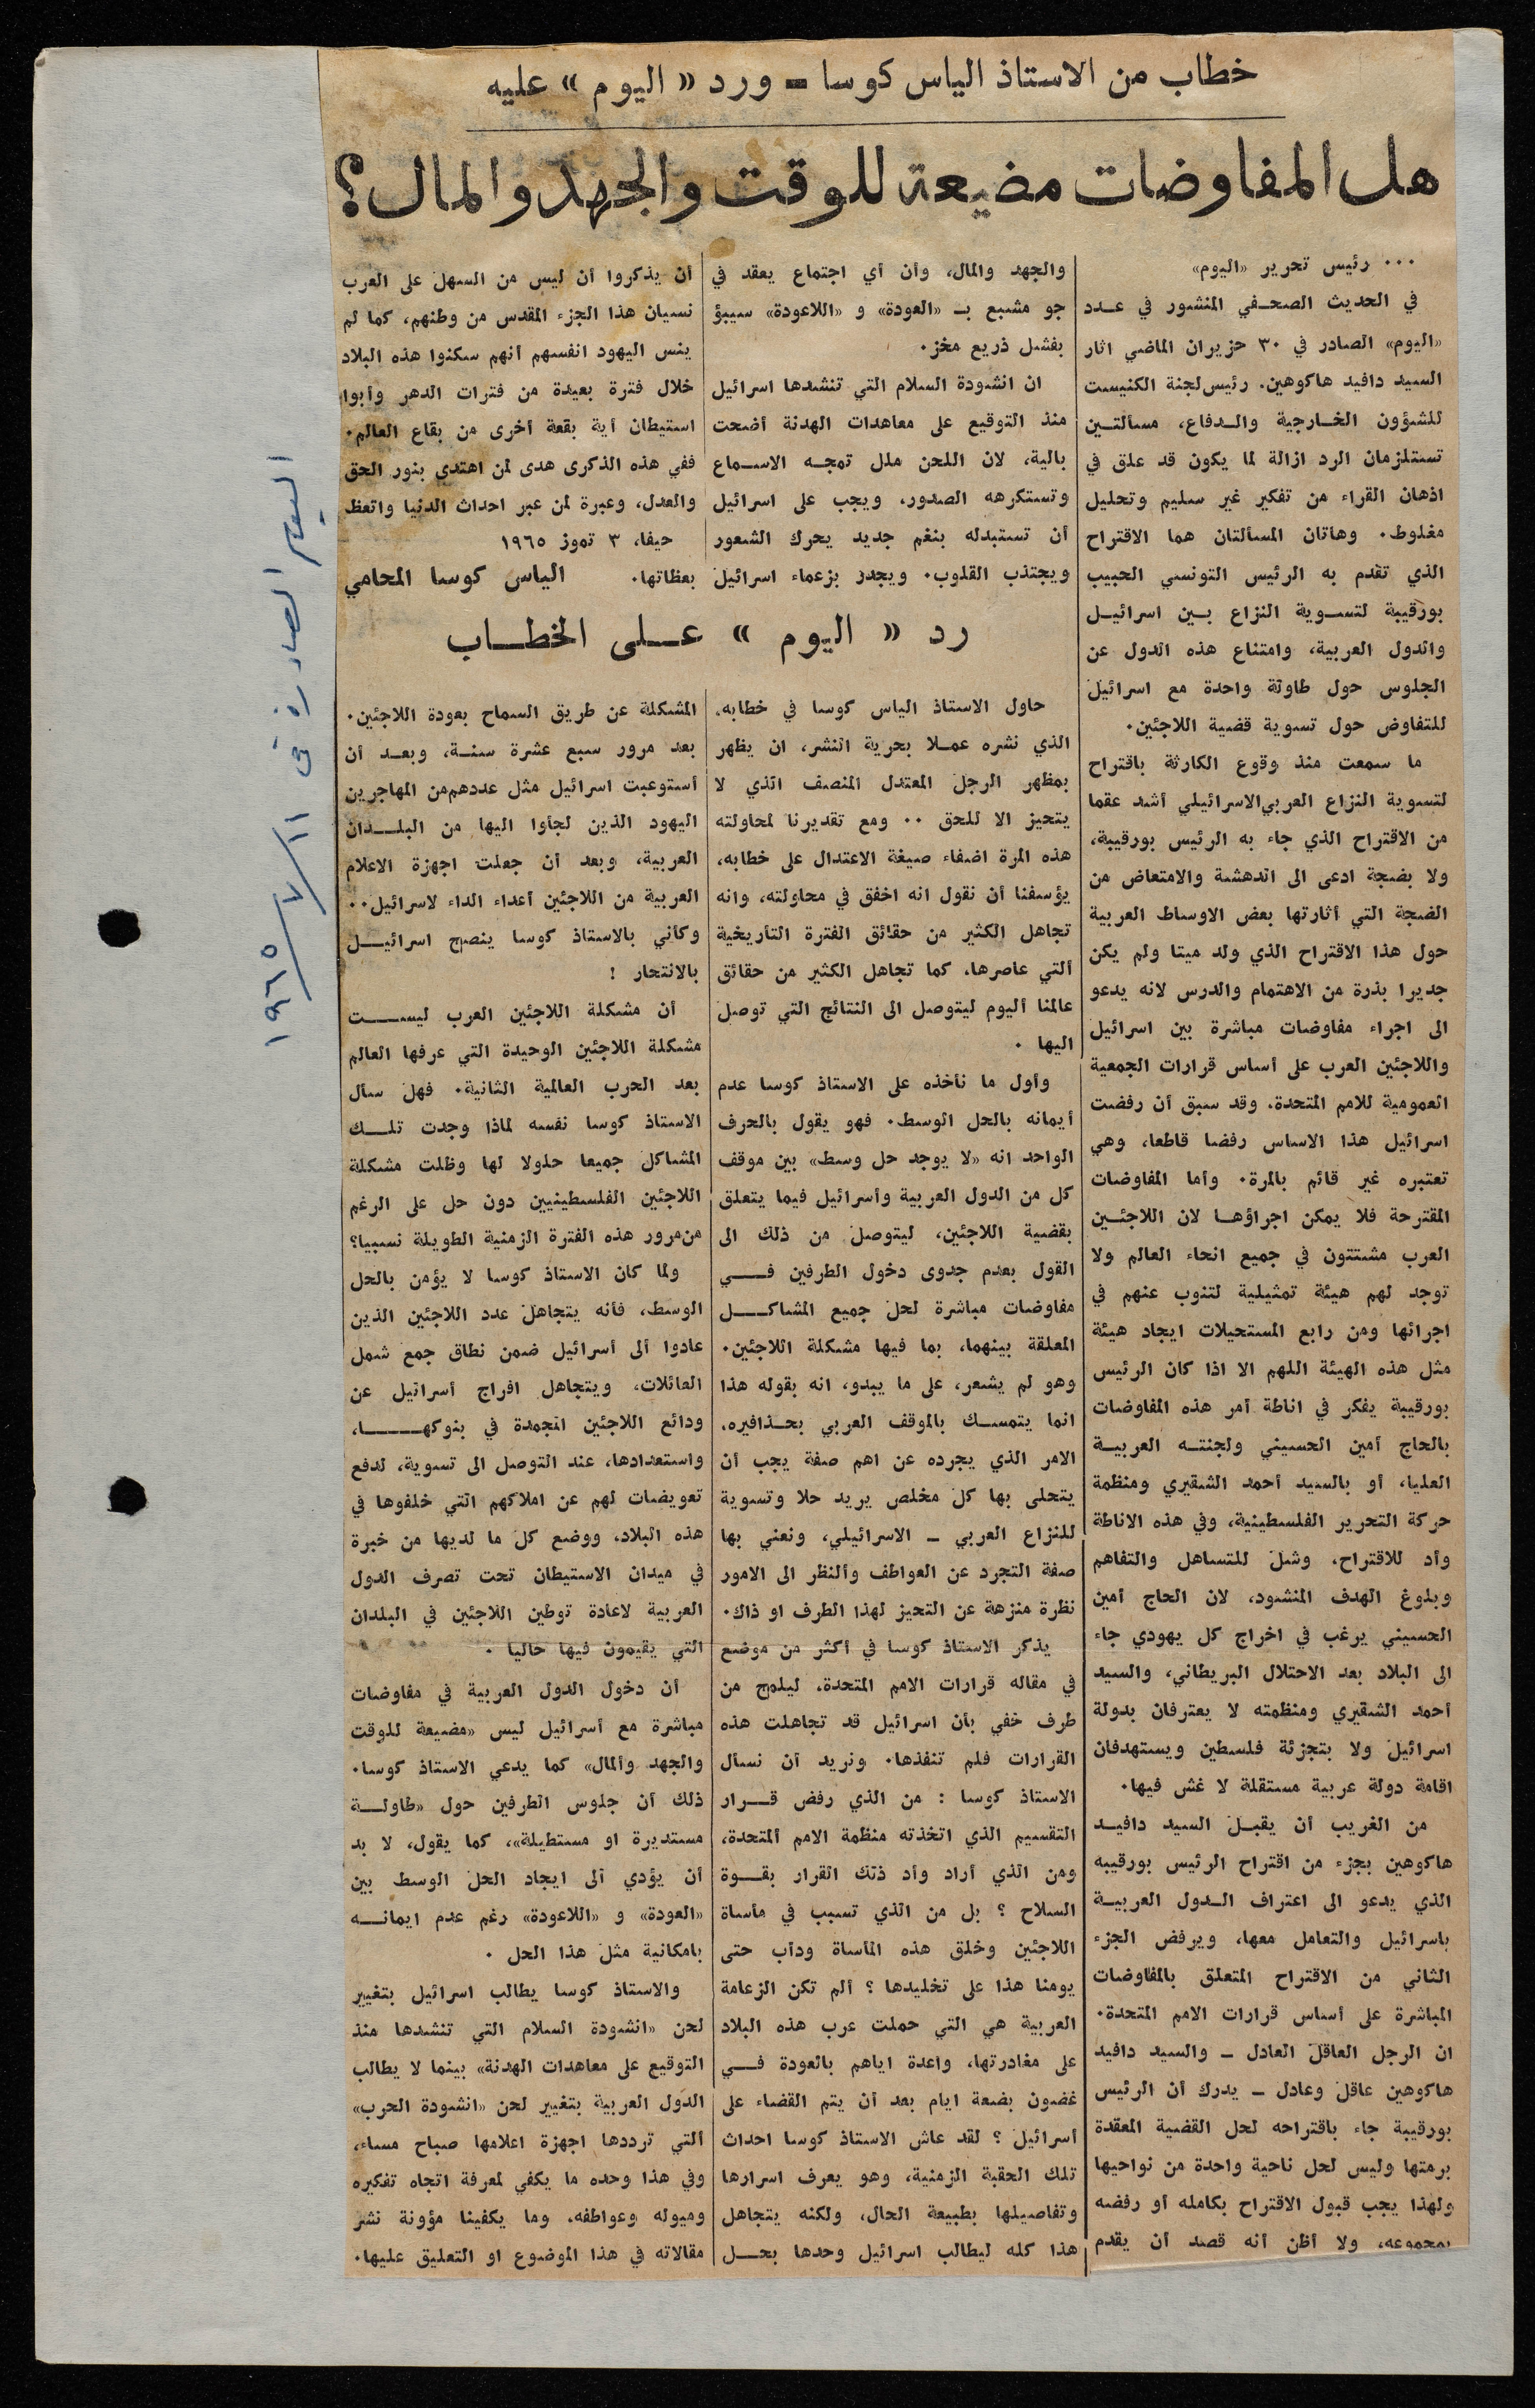 خطاب من الاستاذ الياس كوسا - ورد « اليوم » عليه
هل المفاوضات مضيعة للوقت والجهد والمال؟
... رئيس تحرير «اليوم»
في الحديث الصحفي المنشور في عدد
«اليوم» الصادر في ٣٠ حزيران الماضي اثار
السيد دافيد هاكوهين. رئيس لجنة الكنيست
للشؤون الخارجية والدفاع، مسألتين
تستلزمان الرد ازالة لما يكون قد علق في
اذهان القراء من تفكير غير سليم وتحليل
مغلوط. وهاتان المسألتان هما الاقتراح
الذي تقدم به الرئيس التونسي الحبيب
بورقيبة لتسوية النزاع بين اسرائيل
والدول العربية، وامتناع هذه الدول عن
الجلوس حول طاولة واحدة مع اسرائيل
للتفاوض حول تسوية قضية اللاجئين.
ما سمعت منذ وقوع الكارثة باقتراح
لتسوية النزاع العربي الاسرائيلي أشد عقما
من الاقتراح الذي جاء به الرئيس بورقيبة،
ولا بضجة ادعى الى الدهشة والامتعاض من
الضجة التي أثارتها بعض الاوساط العربية
حول هذا الاقتراح الذي ولد ميتا ولم يكن
جديرا بذرة من الاهتمام والدرس لانه يدعو
الى اجراء مفاوضات مباشرة بين اسرائيل
واللاجئين العرب على أساس قرارات الجمعية
العمومية للامم المتحدة. وقد سبق أن رفضت
اسرائيل هذا الاساس رفضا قاطعا، وهي
تعتبره غير قائم بالمرة. وأما المفاوضات
المقترحة فلا يمكن اجراؤها لان اللاجئين
العرب مشتتون في جميع انحاء العالم ولا
توجد لهم هيئة تمثيلية لتنوب عنهم في
اجرائها ومن رابع المستحيلات ايجاد هيئة
مثل هذه الهيئة اللهم الا اذا كان الرئيس
بورقيبة يفكر في اناطة أمر هذه المفاوضات
بالحاج أمين الحسيني ولجنته العربية
العليا، أو بالسيد أحمد الشقيري ومنظمة
حركة التحرير الفلسطينية، وفي هذه الاناطة
وأد للاقتراح، وشل للتساهل والتفاهم
وبلوغ الهدف المنشود، لان الحاج أمين
الحسيني يرغب في اخراج كل يهودي جاء
الى البلاد بعد الاحتلال البريطاني، والسيد
أحمد الشقيري ومنظمته لا يعترفان بدولة
اسرائيل ولا بتجزئة فلسطين ويستهدفان
اقامة دولة عربية مستقلة لا غش فيها.
من الغريب أن يقبل السيد دافيد
هاكوهين بجزء من اقتراح الرئيس بورقيبه
الذي يدعو الى اعتراف الدول العربية
باسرائيل والتعامل معها، ويرفض الجزء
الثاني من الاقتراح المتعلق بالمفاوضات
المباشرة على أساس قرارات الامم المتحدة.
ان الرجل العاقل العادل - والسيد دافيد
هاكوهين عاقل وعادل - يدرك أن الرئيس
بورقيبة جاء باقتراحه لحل القضية المعقدة
برمتها وليس لحل ناحية واحدة من نواحيها
ولهذا يجب قبول الاقتراح بكامله أو رفضه
بمجموعه، ولا أظن أنه قصد أن يقدم
والجهد والمال، وأن أي اجتماع يعقد في
جو مشبع بـ «العودة» و «اللاعودة» سيبؤ
بفشل ذريع مخز.
ان انشودة السلام التي تنشدها اسرائيل
منذ التوقيع على معاهدات الهدنة أضحت
بالية، لان اللحن ملل تمجه الاسماع
وتستكرهه الصدور، ويجب على اسرائيل
أن تستبدله بنغم جديد يحرك الشعور
ويجتذب القلوب. ويجدر بزعماء اسرائيل
أن يذكروا أن ليس من السهل على العرب
نسيان هذا الجزء المقدس من وطنهم، كما لم
ينس اليهود انفسهم أنهم سكنوا هذه البلاد
خلال فترة بعيدة من فترات الدهر وأبوا
استيطان أية بقعة أخرى من بقاع العالم.
ففي هذه الذكرى هدى لمن اهتدى بنور الحق
والعدل، وعبرة لمن عبر احداث الدنيا واتعظ
بعظاتها.
حيفا، ٣ تموز ١٩٦٥
الياس كوسا المحامي
رد « اليوم » على الخطاب
حاول الاستاذ الياس كوسا في خطابه،
الذي نشره عملا بحرية النشر، ان يظهر
بمظهر الرجل المعتدل المنصف الذي لا
يتحيز الا للحق .. ومع تقديرنا لمحاولته
هذه المرة اضفاء صيغة الاعتدال على خطابه،
يؤسفنا أن نقول انه اخفق في محاولته، وانه
تجاهل الكثير من حقائق الفترة التأريخية
ألتي عاصرها، كما تجاهل الكثير من حقائق
عالمنا أليوم ليتوصل الى النتائج التي توصل
اليها .
وأول ما نأخذه على الاستاذ كوسا عدم
أيمانه بالحل الوسط. فهو يقول بالحرف
الواحد انه «لا يوجد حل وسط» بين موقف
كل من الدول العربية وأسرائيل فيما يتعلق
بقضية اللاجئين، ليتوصل من ذلك الى
القول بعدم جدوى دخول الطرفين في
مفاوضات مباشرة لحل جميع المشاكل
المعلقة بينهما، بما فيها مشكلة اللاجئين.
وهو لم يشعر، على ما يبدو، انه بقوله هذا
انما يتمسك بالموقف العربي بحذافيره.
الامر الذي يجرده عن اهم صفة يجب أن
يتحلى بها كل مخلص يريد حلا وتسوية
للنزاع العربي - الاسرائيلي، ونعني بها
صفة التجرد عن العواطف وألنظر الى الامور
نظرة منزهة عن التحيز لهذا الطرف او ذاك.
يذكر الاستاذ كوسا في أكثر من موضع
في مقاله قرارات الامم المتحدة، ليلمح من
طرف خفي بأن اسرائيل قد تجاهلت هذه
القرارات فلم تنفذها. ونريد أن نسأل
الاستاذ كوسا : من الذي رفض قرار
التقسيم الذي اتخذته منظمة الامم ألمتحدة،
ومن الذي أراد وأد ذلك القرار بقوة
السلاح ؟ بل من الذي تسبب في مأساة
اللاجئين وخلق هذه المأساة ودأب حتى
يومنا هذا على تخليدها ؟ ألم تكن الزعامة
العربية هي التي حملت عرب هذه البلاد
على مغادرتها، واعدة اياهم بالعودة في
غضون بضعة ايام بعد أن يتم القضاء على
أسرائيل ؟ لقد عاش الاستاذ كوسا احداث
تلك الحقبة الزمنية، وهو يعرف اسرارها
وتفاصيلها بطبيعة الحال، ولكنه يتجاهل
هذا كله ليطالب اسرائيل وحدها بحل
المشكلة عن طريق السماح بعودة اللاجئين.
بعد مرور سبع عشرة سنة، وبعد أن
أستوعبت اسرائيل مثل عددهم من المهاجرين
اليهود الذين لجأوا اليها من البلدان
العربية، وبعد أن جعلت اجهزة الاعلام
العربية من اللاجئين أعداء الداء لاسرائيل..
وكأني بالاستاذ كوسا ينصح اسرائيل
بالانتحار !
أن مشكلة اللاجئين العرب ليست
مشكلة اللاجئين الوحيدة التي عرفها العالم
بعد الحرب العالمية الثانية. فهل سأل
الاستاذ كوسا نفسه لماذا وجدت تلك
المشاكل جميعا حلولا لها وظلت مشكلة
اللاجئين الفلسطينيين دون حل على الرغم
من مرور هذه الفترة الزمنية الطويلة نسبيا؟
ولما كان الاستاذ كوسا لا يؤمن بالحل
الوسط، فأنه يتجاهل عدد اللاجئين الذين
عادوا ألى أسرائيل ضمن نطاق جمع شمل
العائلات، ويتجاهل افراج أسرائيل عن
ودائع اللاجئين المجمدة في بنوكها،
واستعدادها، عند التوصل الى تسوية، لدفع
تعويضات لهم عن املاكهم التي خلفوها في
هذه البلاد، ووضع كل ما لديها من خبرة
في ميدان الاستيطان تحت تصرف الدول
العربية لاعادة توطين اللاجئين في البلدان
التي يقيمون فيها حاليا .
أن دخول الدول العربية في مفاوضات
مباشرة مع أسرائيل ليس «مضيعة للوقت
والجهد وألمال» كما يدعي الاستاذ كوسا.
ذلك أن جلوس الطرفين حول «طاولة
مستديرة او مستطيلة»، كما يقول، لا بد
أن يؤدي ألى ايجاد الحل الوسط بين
«العودة» و «اللاعودة» رغم عدم ايمانه
بامكانية مثل هذا الحل .
والاستاذ كوسا يطالب اسرائيل بتغيير
لحن «انشودة السلام التي تنشدها منذ
التوقيع على معاهدات الهدنة» بينما لا يطالب
الدول العربية بتغيير لحن «انشودة الحرب»
ألتي ترددها اجهزة اعلامها صباح مساء،
وفي هذا وحده ما يكفي لمعرفة اتجاه تفكيره
وميوله وعواطفه. وما يكفينا مؤونة نشر
مقالاته في هذا الموضوع او التعليق عليها.
اليوم الصادرة في ١١/٧/١٩٦٥